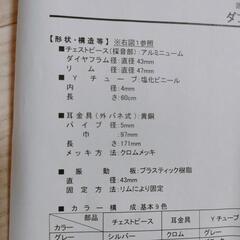 【形状・構造等】※右図1参照
■チェストピース(採音部)アルミニューム
ダイヤフラム:直径43mm
リム:直径47mm
■Yチューブ:塩化ビニール
内径:4mm
長さ:60cm
■耳金具(外バネ式)黄銅
パイプ:直径5mm
巾:97mm
長さ:171mm
メッキ方法:クロムメッキ
■振動板:プラスティック樹脂
直径:43mm
固定方法:リムにより固定
■カラー構成:基本9色
部品 チェストピース 耳金具 Yチューブ
カラー
グレー シルバー クロム グレー